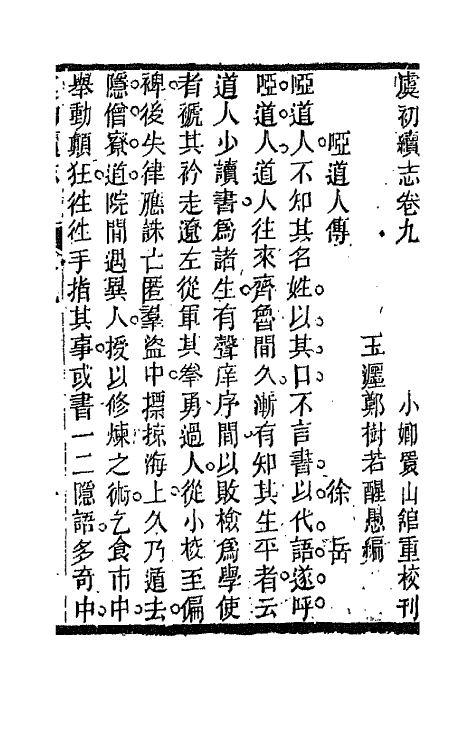 虞初續志卷九
小嫏嬛山館重校刊
玉遲鄭樹若醒愚編
啞道人傳　徐岳
啞道人不知其名姓以其口不言書以代語遂呼
啞道人道人往來齊魯間久漸有知其生平者云
道人少讀書爲諸生有聲庠序間以敗檢爲學使
者褫其衿走遼左從軍其拳勇過人從小校至偏
裨後失律應誅亡匿羣盜中摽掠海上久乃遁去
隱僧寮道院間遇異人授以修煉之術乞食市中
舉動顛狂徃徃手指其事或書一二隱語多奇中